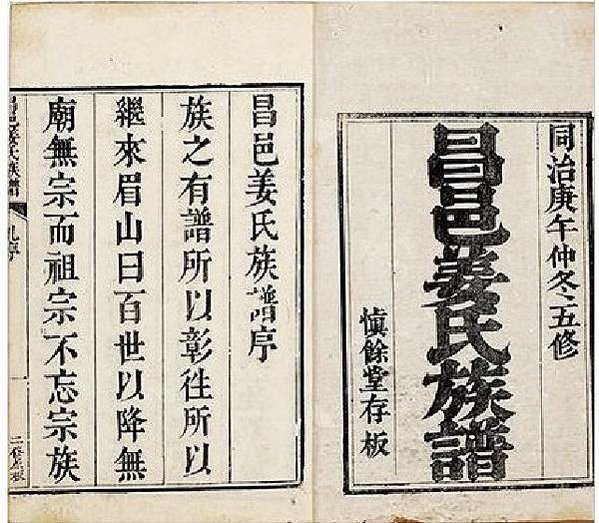 同治庚午仲冬五修
昌邑姜氏族譜
慎餘堂存板
昌邑姜氏族譜序
族之有譜所以彰徃所以
繼來眉山曰百世以降無
廟無宗而祖宗不忘宗族
昌邑姜氏族譜